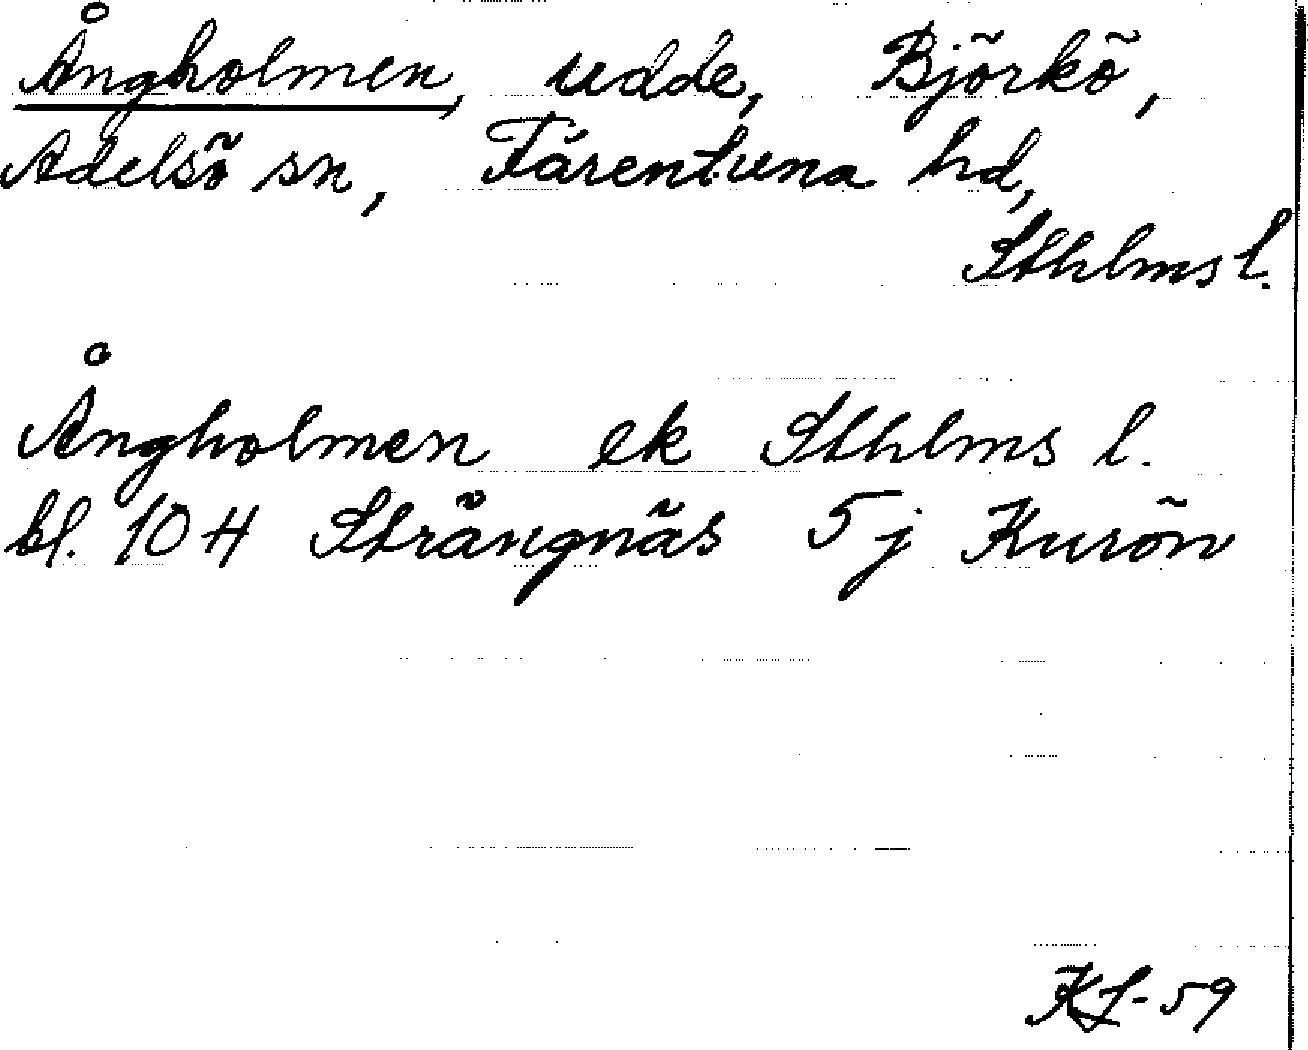 Ångholmen, udde, Björkö,
Adelsö sn, Färentuna hd,
Sthlms l.
Ångholmen ek Sthlms l.
bl. 10 H Strängnäs 5 j Kurön
KL-59